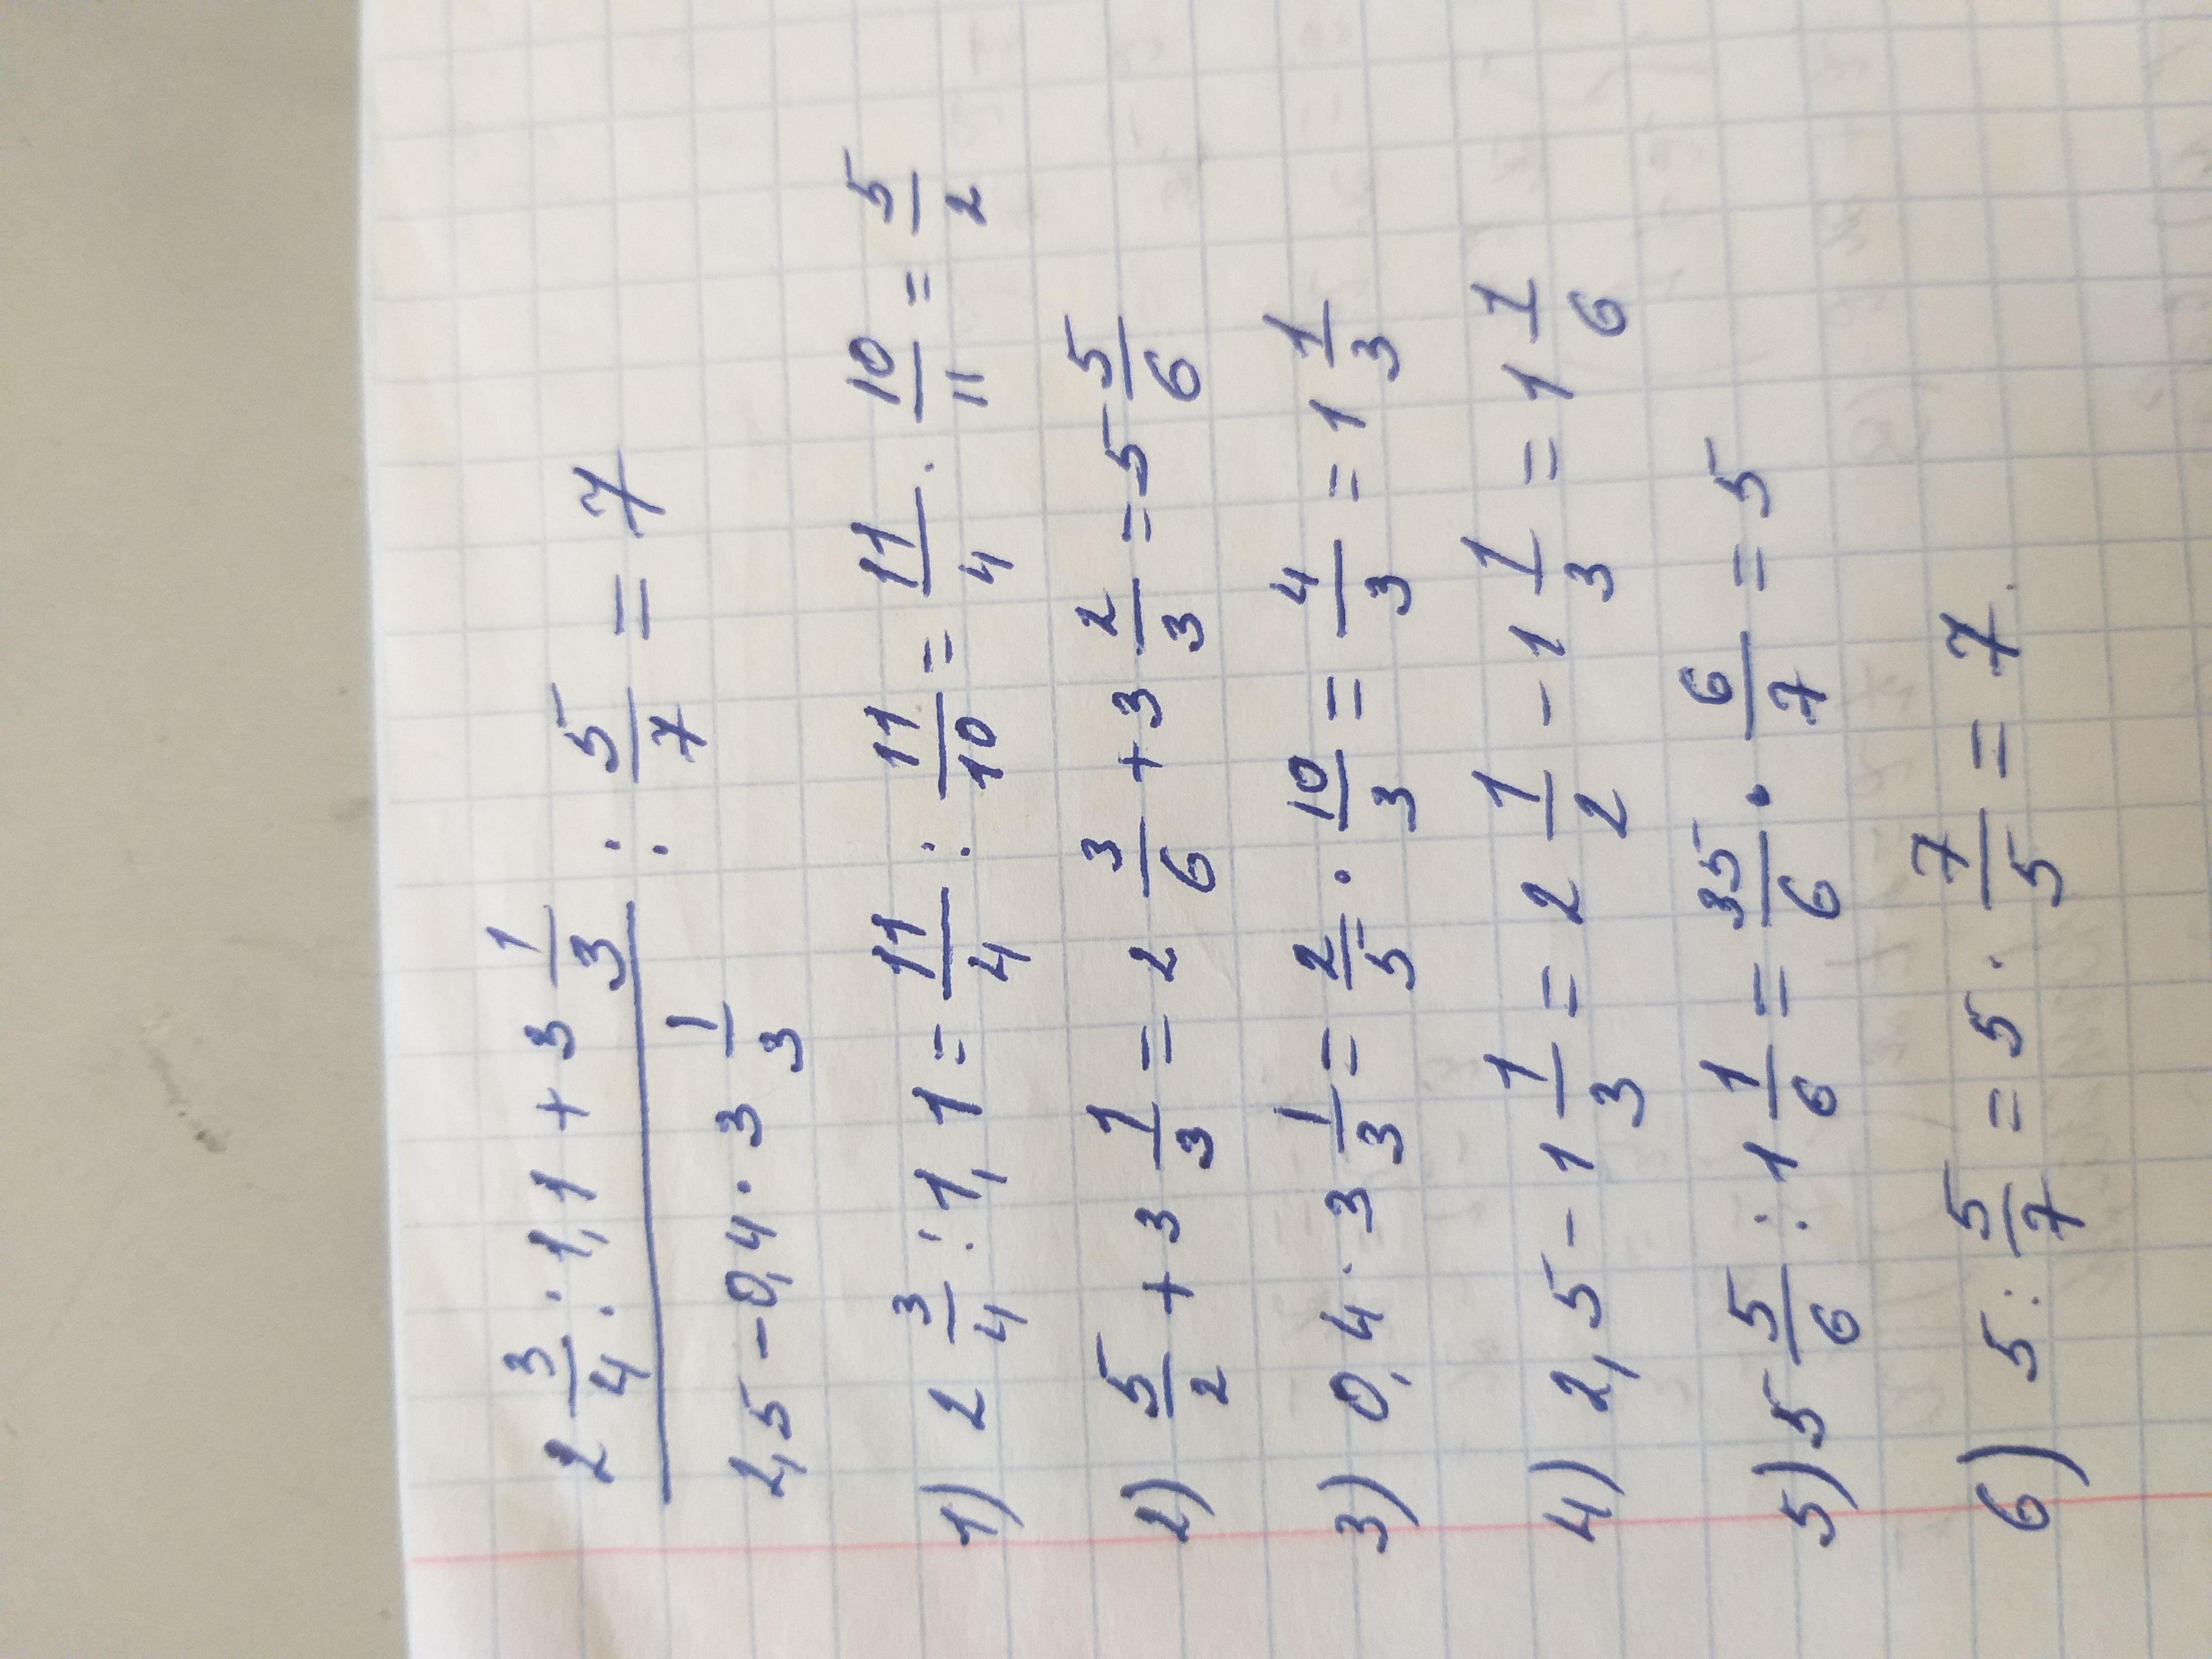 2 3/4 : 1,1 + 3 1/3
2,5 - 0,4 · 3 1/3 : 5/7 = 7
1) 2 3/4 : 1,1 = 11/4 : 11/10 = 11/4 · 10/11 = 5/2
2) 5/2 + 3 1/3 = 2 3/6 + 3 2/3 = 5 5/6
3) 0,4 · 3 1/3 = 2/5 · 10/3 = 4/3 = 1 1/3
4) 2,5 - 1 1/3 = 2 1/2 - 1 1/3 = 1 1/6
5) 5 5/6 : 1 1/6 = 35/6 · 6/7 = 5
6) 5 : 5/7 = 5 · 7/5 = 7.